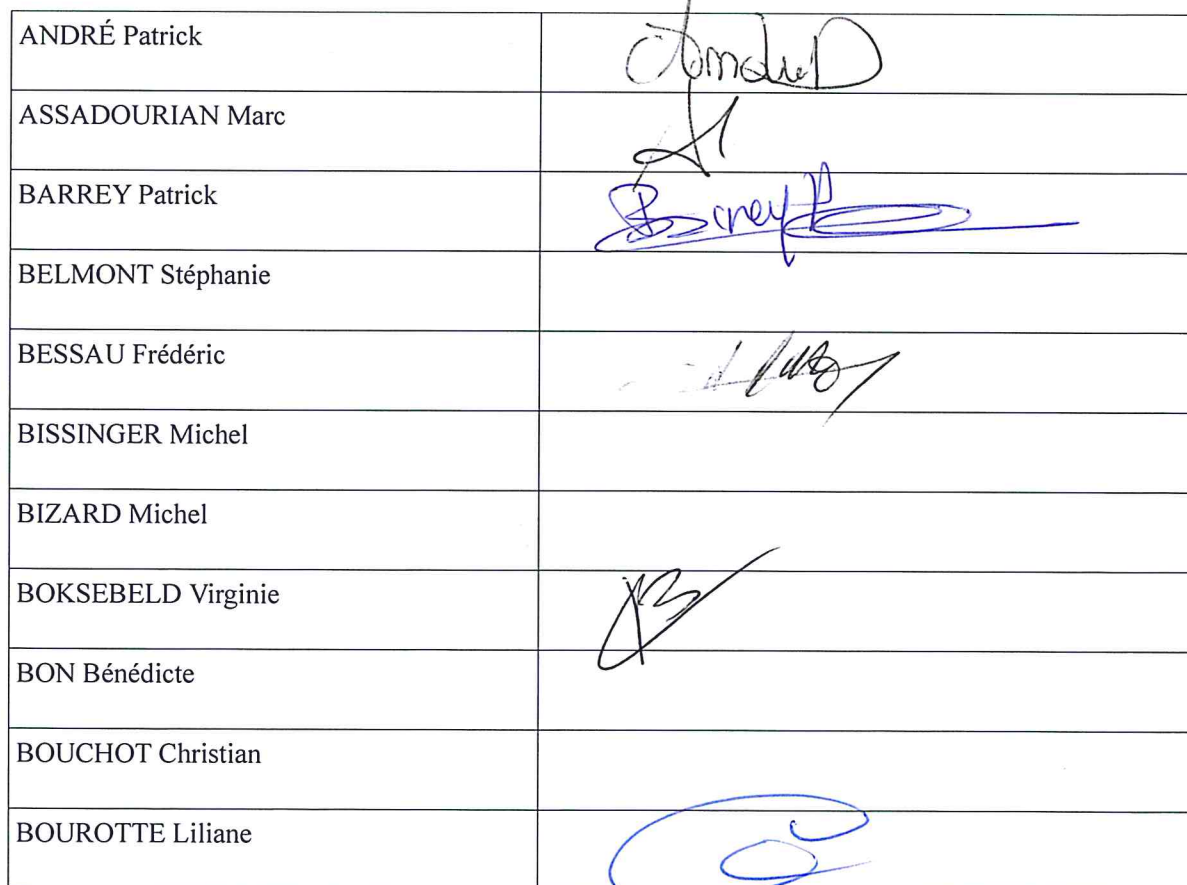 ANDRÉ Patrick
ASSADOURIAN Marc
BARREY Patrick
Barrey P
BELMONT Stéphanie
BESSAU Frédéric
BISSINGER Michel
BIZARD Michel
BOKSEBELD Virginie
BON Bénédicte
BOUCHOT Christian
BOUROTTE Liliane